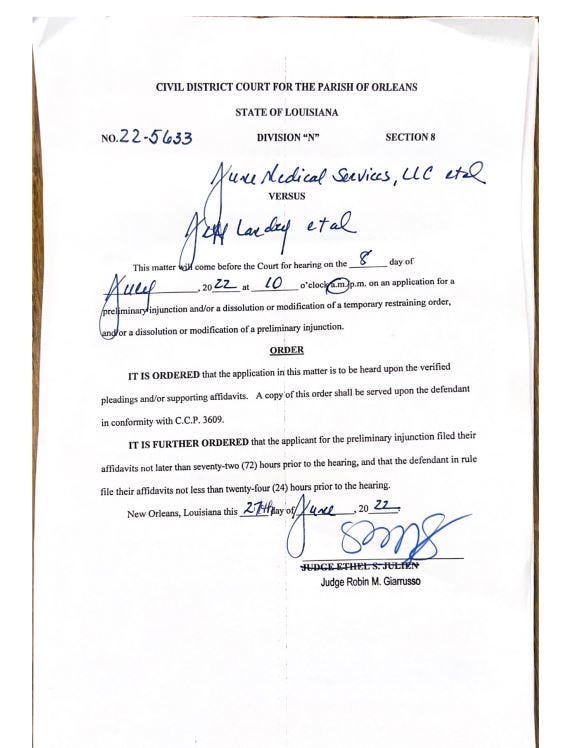 CIVIL DISTRICT COURT FOR THE PARISH OF ORLEANS
STATE OF LOUISIANA
NO. 22-5633 DIVISION “N” SECTION 8
June Medical Services, LLC et al
VERSUS
Jeff Landry et al
This matter will come before the Court for hearing on the 8 day of
July, 2022 at 10 o'clock a.m./p.m. on an application for a
preliminary injunction and/or a dissolution or modification of a temporary restraining order,
and/or a dissolution or modification of a preliminary injunction.
ORDER
IT IS ORDERED that the application in this matter is to be heard upon the verified
pleadings and/or supporting affidavits. A copy of this order shall be served upon the defendant
in conformity with C.C.P. 3609.
IT IS FURTHER ORDERED that the applicant for the preliminary injunction filed their
affidavits not later than seventy-two (72) hours prior to the hearing, and that the defendant in rule
file their affidavits not less than twenty-four (24) hours prior to the hearing.
New Orleans, Louisiana this 27th day of June, 2022.
JUDGE ETHEL S. JULIEN
Judge Robin M. Giarrusso